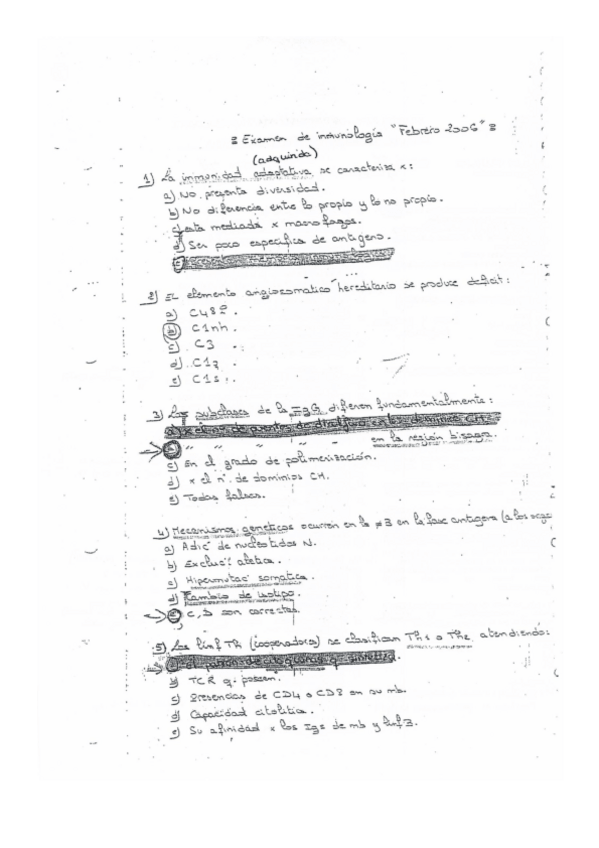 Examen de inmunología "Febrero 2006"
(adquirida)
1) La inmunidad adaptativa se caracteriza x:
a) No presenta diversidad.
b) No diferencia entre lo propio y lo no propio.
c) esta mediada x macrofagos.
d) Ser poco especifica de antigeno.
e)
2) EL elemento angioeomatico hereditario se produce deficit:
a) C4
b) C1nh.
c) C3
d) C1q
e) C1s.
3) Las subclases de la IgG difieren fundamentalmente:
a) x el no de puentes de disulfuro en los dominios CH.
b) " " " " " en la region bisagra.
c) En el grado de polimerización.
d) x el nº de dominios CH.
e) Todas falsas.
4) Mecanismos geneticos ocurren en la ≠B en la fase antigena (a los
a) Adic° de nucleotidos N.
b) Excluc° alelica.
c) Hipermutac° somatica.
d) Kambio de isotipo.
e) C, D son correctas.
5) Los linf TH (cooperadores) se clasifican Th1 o Th2, atendiendo:
a) el patron de citoquinas q sintetiza.
b) TCR q poseen.
c) Presencias de CD4 o CD8 en su mb.
d) Capacidad citolitica.
e) Su afinidad x los Igs de mb y linf B.